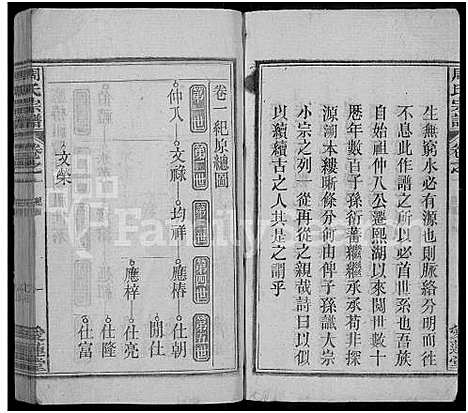 周氏宗譜
卷之
生無窮水必有源也則脈絡分明
不亂此作譜之所以必首世系也吾族
自始祖仲八公遷熙湖以來閱世數十
歷年數百子孫衍蕃繼繼承承苟非探
源溯本縷晰條分何由俾子孫識大宗
小宗之列一從再從之親哉詩曰以似
以續續古之人其是之謂乎
愛蓮堂
卷一紀原總圖
第一世
第二世
第三世
第四世
第五世
仲八
文祿
均祥
應椿
仕朝
仕
應梓
仕亮
仕隆
仕富
文榮
周氏宗譜
卷之
愛蓮堂